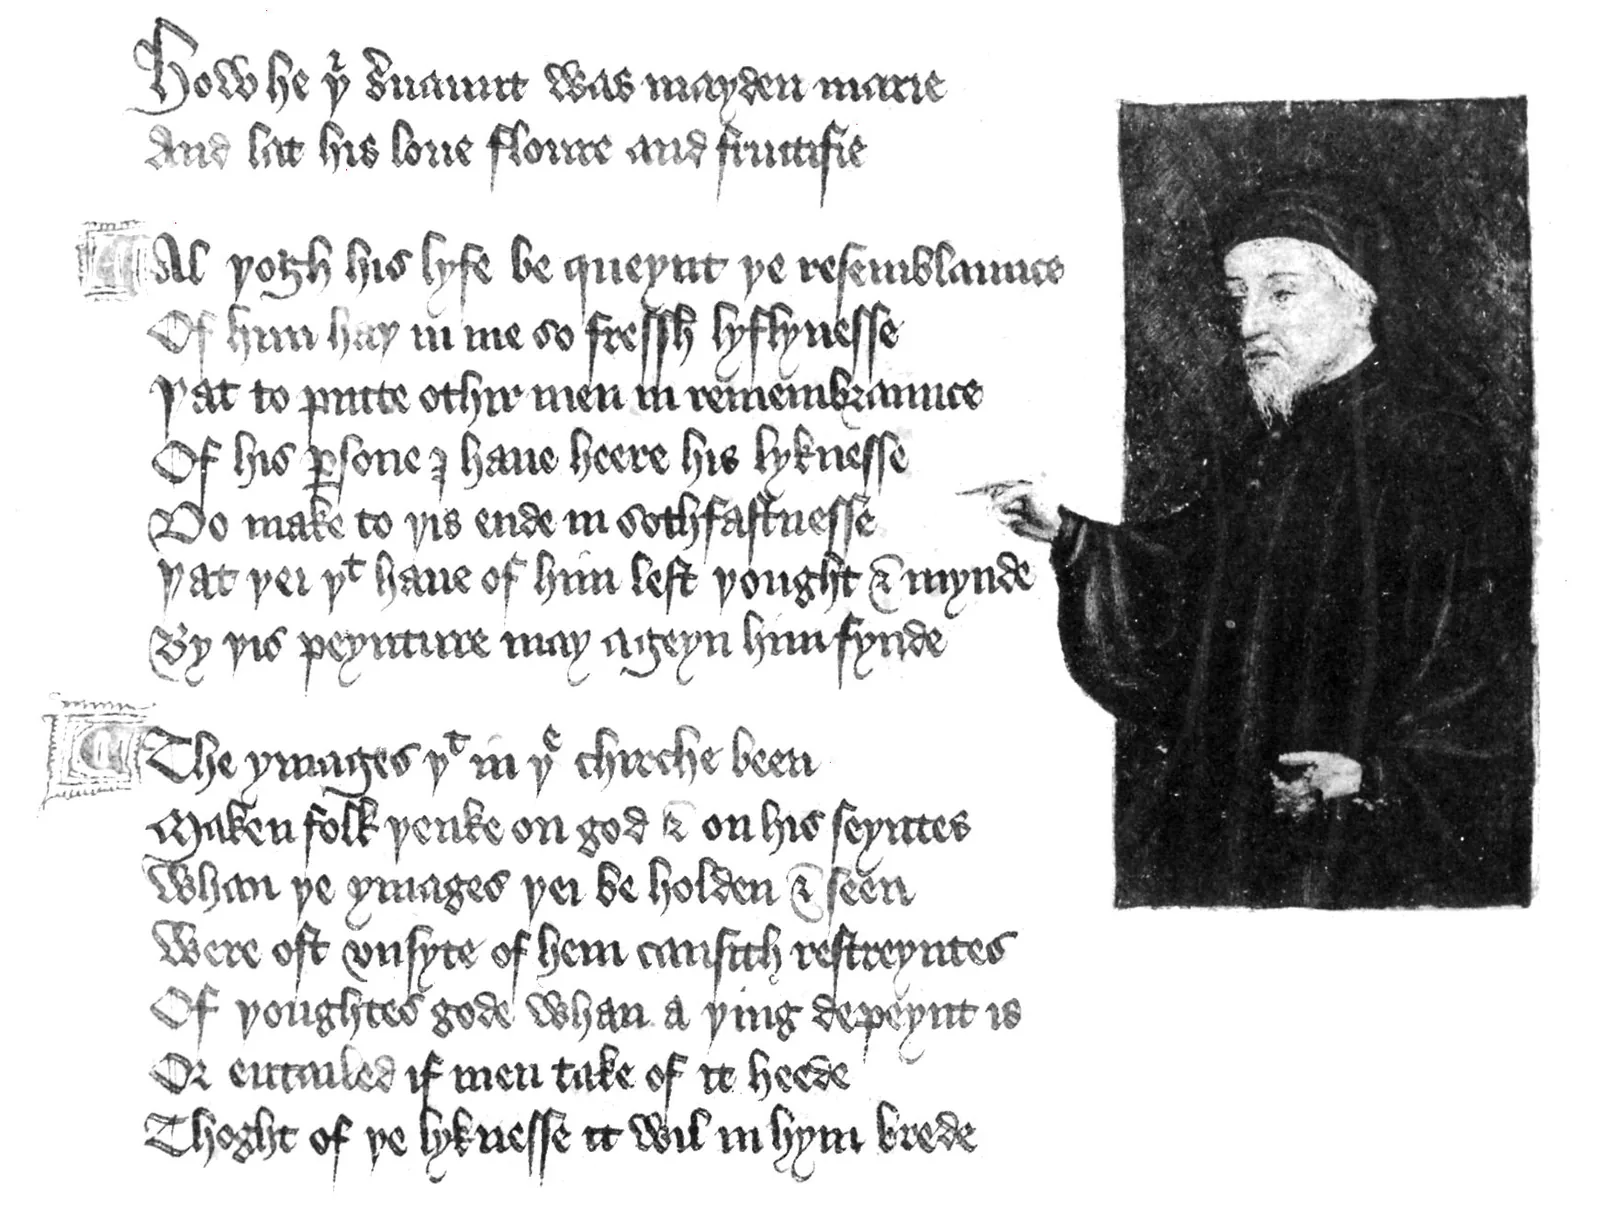 How he þi s'uaunt was mayden marie
And lat his loue floure and fructifie
Al þogh his lyfe be queynt þe resemblaunce
Of him haþ in me so fressh lyflynesse
Þat to putte othir men in remembraunce
Of his ꝑsone I haue heere his lyknesse
Do make to þis ende in sothfastnesse
Þat þei þᵗ haue of him left þought & mynde
By þis peynture may ageyn him fynde
The ymages þᵗ in þᵉ chirche been
Maken folk þenke on god & on his seyntes
Whan þe ymages þei be holden & seen
Were oft vnsyte of hem causith restreyntes
Of þoughtes gode whan a þing depeynt is
Or entailed if men take of it heede
Thoght of þe lyknesse it wil in hym brede